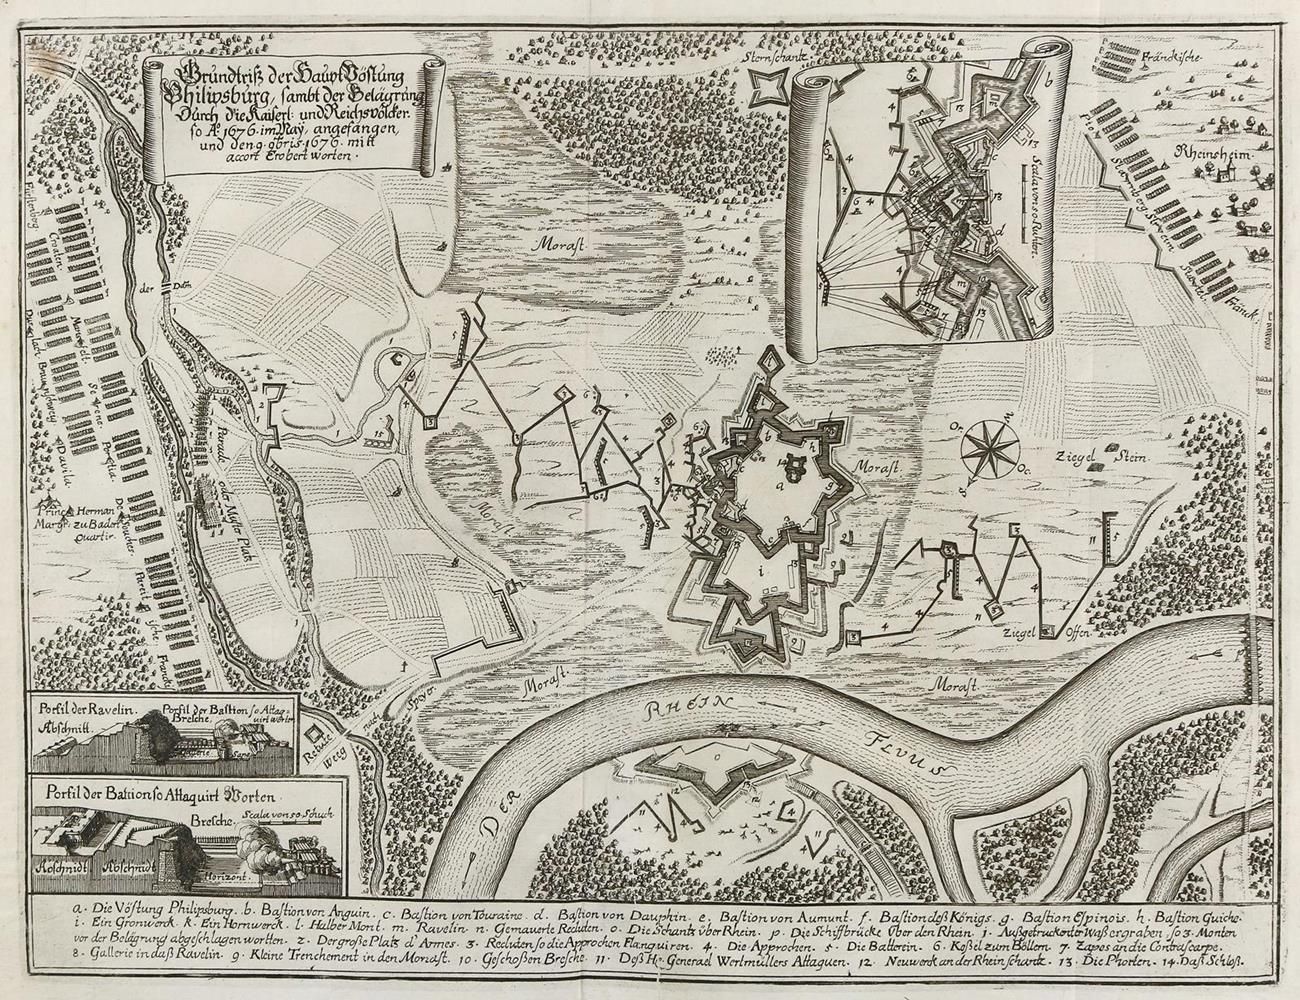 Grundriß der Haupt Vöstung
Philipsburg, sambt der Belägrung
Durch die Kaiserl: und Reichsvölcker.
so Aō. 1676. im May, angefangen,
und den 9. 9bris. 1676. mitt
accort Erobert worten.
Sternschantz.
Fränckische.
Rheinsheim.
Scala von 50. Ruhten.
Morast.
der Dam
Fürstenberg
Croaten.
Mansfelt.
Souchet.
Portia.
David
Durlach.
Braunschweig
Prinz Herman
Margr: zu Baden
Quartir.
Parade oder Muster Plaz
Morast.
Morast.
Ziegel Stein.
Ziegel Offen.
Morast.
Morast.
nach Speyer
Retute
Weeg
DER RHEIN FLVVS
Porfil der Ravelin.
Abschnitt.
Porfil der Bastion so Attaq-
uirt worten
Bresche.
Gallerie
Sape
Porfil der Bastion so Attaquirt Worten.
Bresche.
Scala von 50. Schuch
Abschnidt
Abschnidt
Horizont.
a. Die Vöstung Philipsburg. b. Bastion von Anguin. c. Bastion von Touraine. d. Bastion von Dauphin. e. Bastion von Aumunt. f. Bastion deß Königs. g. Bastion Espinois. h. Bastion Guiche.
i. Ein Cronwerck. k. Ein Hornwerck. l. Halber Mont. m. Ravelin. n. Gemauerte Reduten. o. Die Schantz über Rhein. p. Die Schiffbrücke Über den Rhein. 1. Außgetruckenter Waßergraben, so 3. Monten
vor der Belägrung abgeschlagen wortten. 2. Der große Platz d'Armes. 3. Reduten so die Approchen Flanquiren. 4. Die Approchen. 5. Die Batterein. 6. Keßel zum Böllern. 7. Zapes an die Contrscarpe.
8. Gallerie in daß Ravelin. 9. Kleine Trenchement in den Morast. 10. Geschoßen Bresche. 11. Deß Hn. General Wertmüllers Attaquen. 12. Neuwerck an der Rheinschantz. 13. Die Phorten. 14. Daß Schloß.